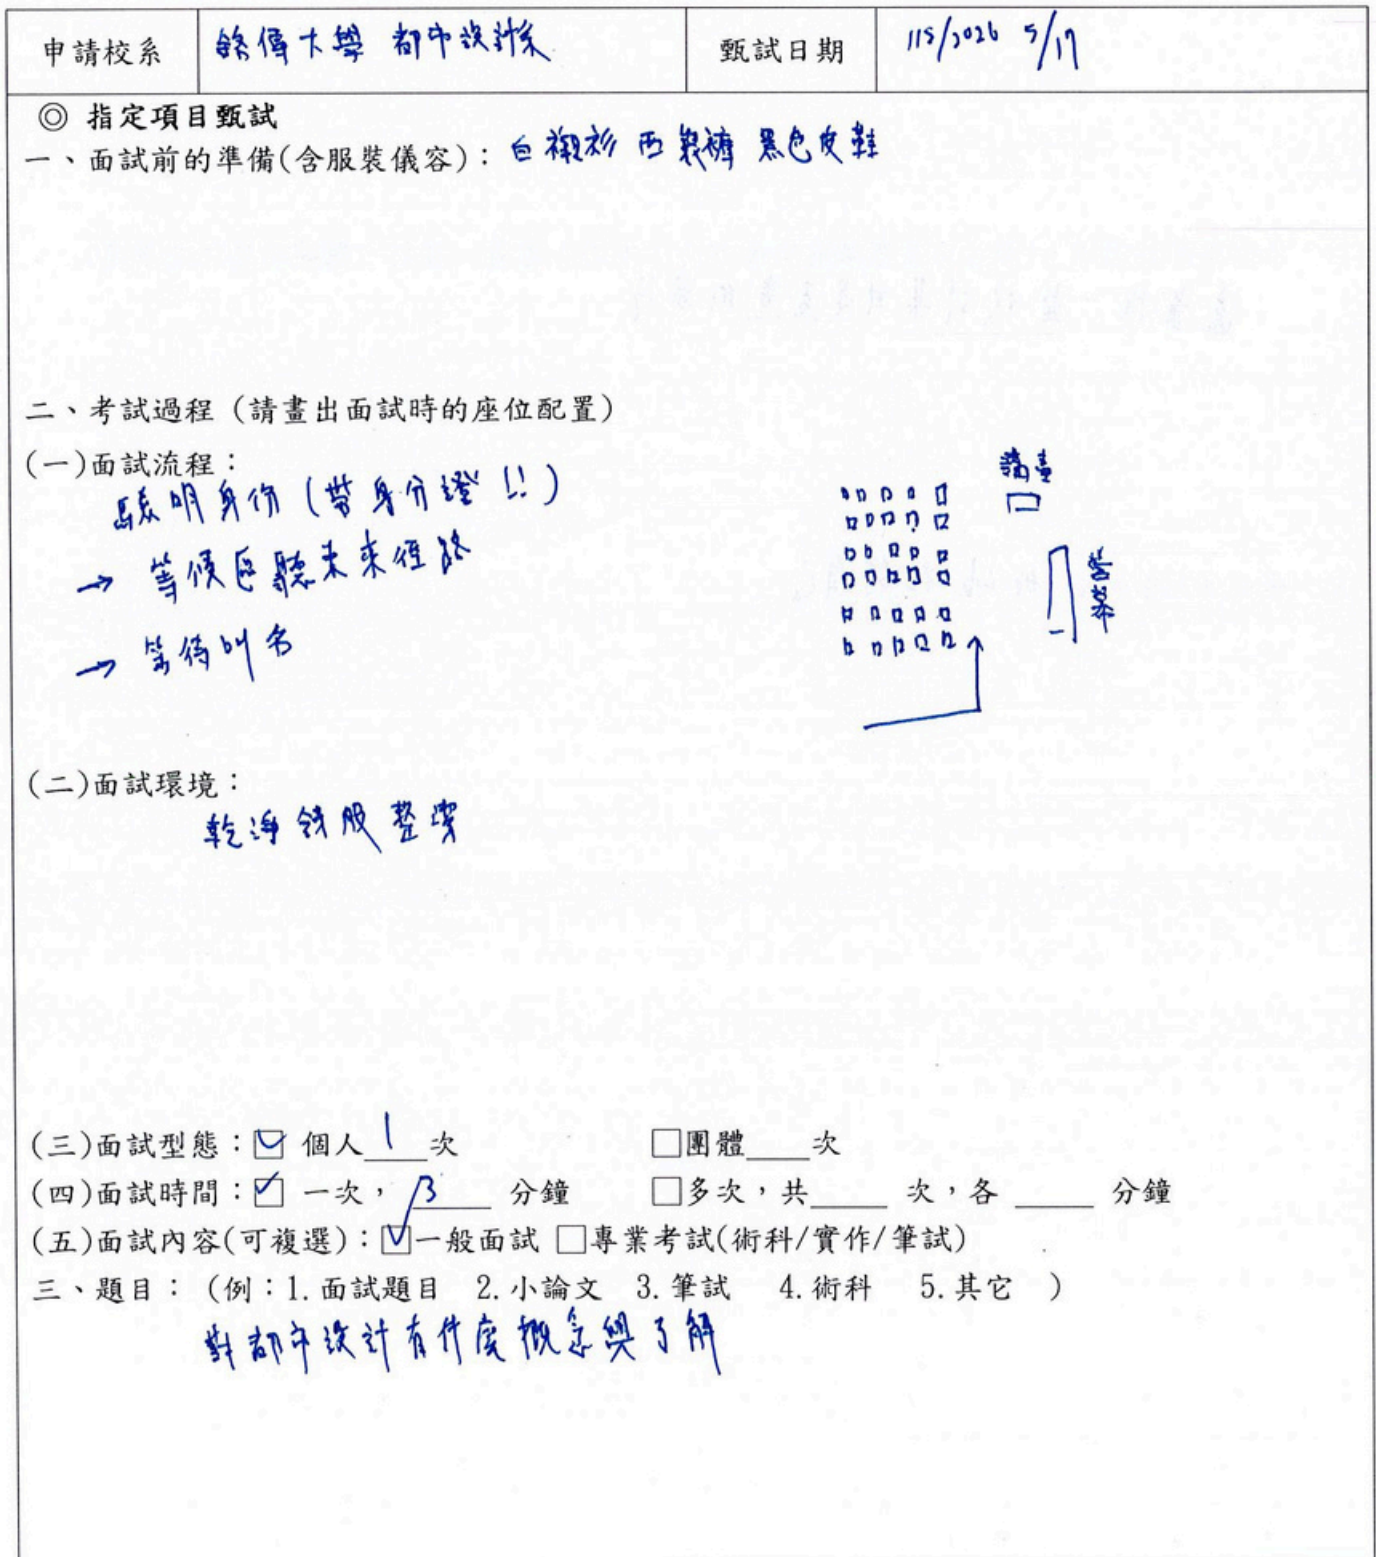 申請校系 銘傳大學 都市設計系 甄試日期 115/2026 5/17
◎ 指定項目甄試
一、面試前的準備(含服裝儀容): 白襯衫 西裝褲 黑色皮鞋
二、考試過程 (請畫出面試時的座位配置)
(一)面試流程:
驗明身份 (帶身分證 !!)
→ 等候區聽未來徑路
→ 等待叫名
講臺
螢幕
(二)面試環境:
乾淨 舒服 整潔
(三)面試型態:☑ 個人 1 次 □團體____次
(四)面試時間:☑ 一次, 13 分鐘 □多次,共____ 次,各 ____ 分鐘
(五)面試內容(可複選):☑一般面試 □專業考試(術科/實作/筆試)
三、題目: (例:1.面試題目 2.小論文 3.筆試 4.術科 5.其它 )
對都市設計有什麼概念與了解